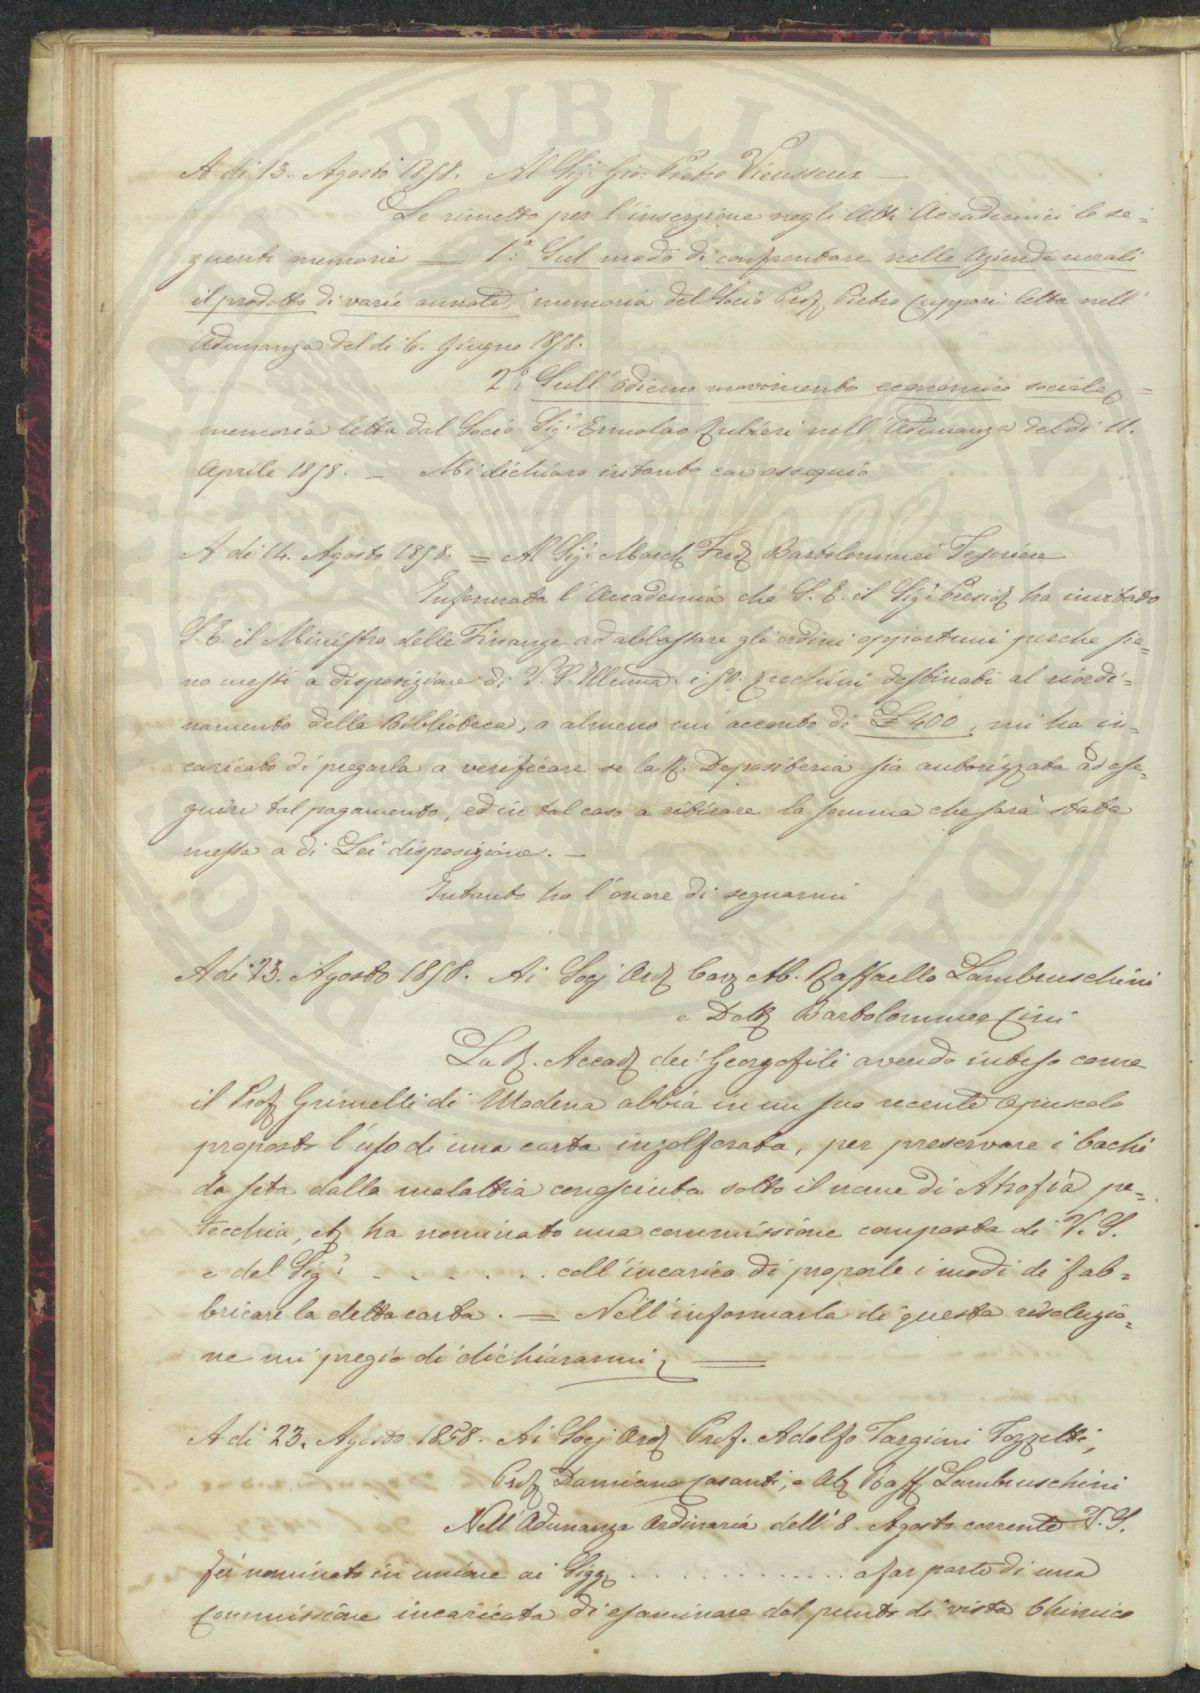 A dì 13. Agosto 1858. Al Sig. Gio. Pietro Vieusseux —
Le rimetto per l'inserzione negli Atti Accademici le se-
guenti memorie — 1.a Sul modo di confrontare nelle Aziende rurali
il prodotto di varie annate, memoria del Socio Prof. Pietro Cuppari letta nell'
Adunanza del dì 6. Giugno 1858.
2.a Sull'odierno movimento economico sociale =
memoria letta dal Socio Sig. Ermolao Rubieri nell'Adunanza del dì 11.
Aprile 1858. — Mi dichiaro intanto con ossequio
A dì 14. Agosto 1858. = Al Sig. March. Ferd. Bartolommei Tesoriere
Informata l'Accademia che S. E. il Sig. Presid. ha invitato
S. E. il Ministro delle Finanze ad abbassare gli ordini opportuni perche sie-
no messi a disposizione di V. S. Illma i 50. zecchini destinati al riordi-
namento della Biblioteca, o almeno un acconto di £ 400, mi ha in-
caricato di pregarla a verificare se la R. Depositeria sia autorizzata ad ese-
guire tal pagamento, ed in tal caso a ritirare la somma che sarà stata
messa a di Lei disposizione. —
Intanto ho l'onore di segnarmi
A dì 23. Agosto 1858. Ai Socj Ord. Cav. Ab. Raffaello Lambruschini
e Dott. Bartolommeo Cini
La R. Accad. dei Georgofili avendo inteso come
il Prof. Grimelli di Modena abbia in un suo recente opuscolo
proposto l'uso di una carta inzolforata, per preservare i bachi
da seta dalla malattia conosciuta sotto il nome di Atrofia pe-
tecchia, ha nominato una commissione composta di V. S.
e del Sig. . . . . . . . coll'incarico di proporle i modi di fab=
bricare la detta carta. — Nell'informarla di questa risoluzio-
ne mi pregio di dichiararmi —
A dì 23. Agosto 1858. Ai Socj Ord. Prof. Adolfo Targioni Tozzetti,
Prof. Damiano Casanti, e Ab. Raff. Lambruschini
Nell'Adunanza Ordinaria dell'8. Agosto corrente V. S.
fu nominato in unione ai Sigg. . . . . . . . . . . . . a far parte di una
Commissione incaricata di esaminare dal punto di vista Chimico